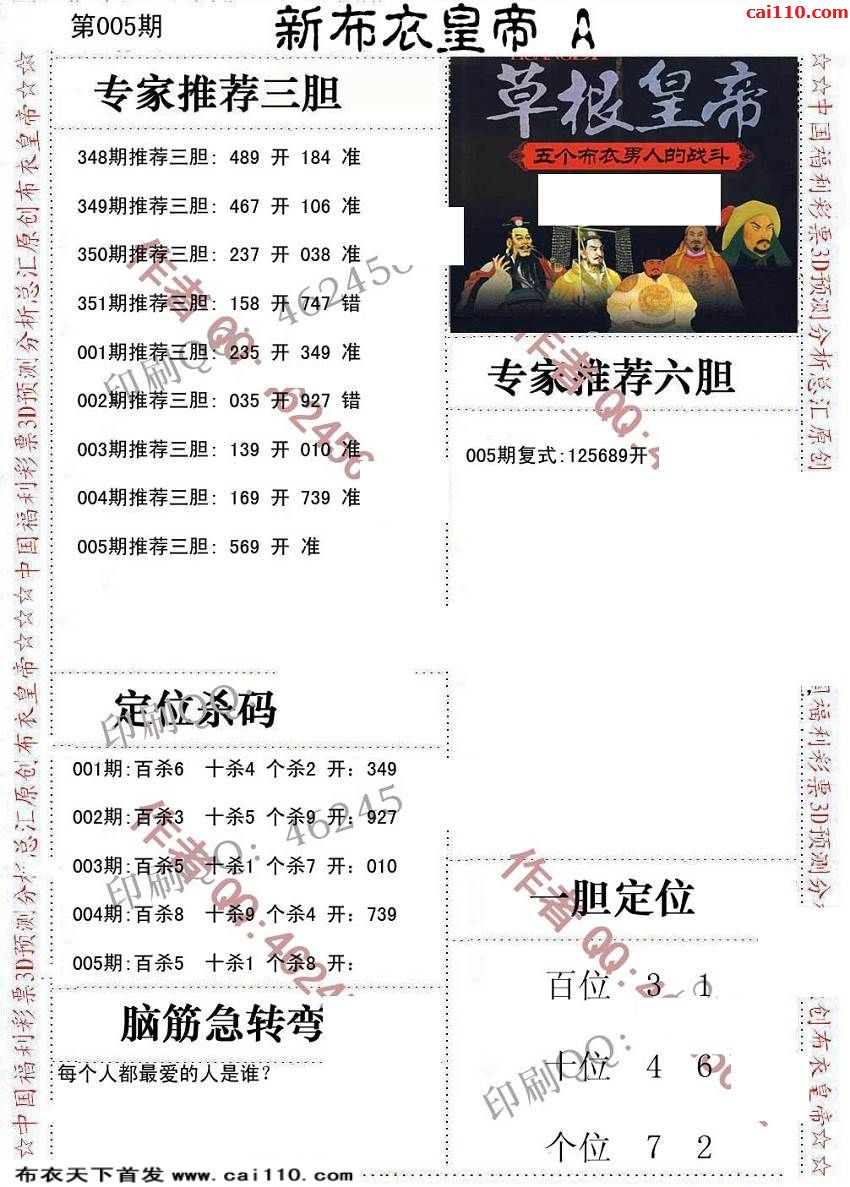 cai110.com
第005期
新布衣皇帝 A
专家推荐三胆
348期推荐三胆: 489 开 184 准
349期推荐三胆: 467 开 106 准
350期推荐三胆: 237 开 038 准
351期推荐三胆: 158 开 747 错
001期推荐三胆: 235 开 349 准
002期推荐三胆: 035 开 927 错
003期推荐三胆: 139 开 010 准
004期推荐三胆: 169 开 739 准
005期推荐三胆: 569 开 准
草根皇帝
五个布衣男人的战斗
专家推荐六胆
005期复式:125689开
定位杀码
001期:百杀6 十杀4 个杀2 开: 349
002期:百杀3 十杀5 个杀9 开: 927
003期:百杀5 十杀1 个杀7 开: 010
004期:百杀8 十杀9 个杀4 开: 739
005期:百杀5 十杀1 个杀8 开:
脑筋急转弯
每个人都最爱的人是谁?
一胆定位
百位 3 1
十位 4 6
个位 7 2
布衣天下首发 www.cai110.com
☆中国福利彩票3D预测分析总汇原创布衣皇帝☆☆
☆☆中国福利彩票3D预测分析总汇原创
福利彩票3D预测分
创布衣皇帝☆☆
作者QQ:462456
印刷QQ: 462456